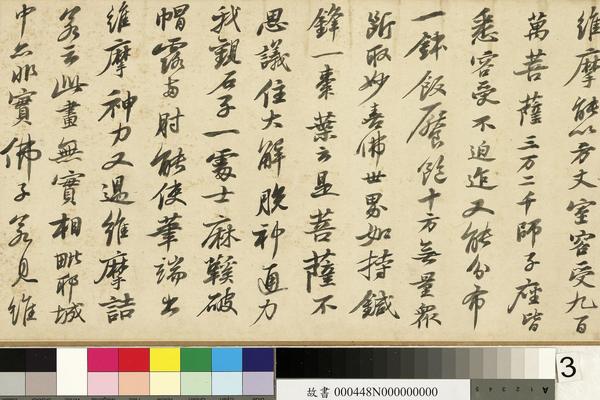 維摩能以方丈室容受九百
萬菩薩三万二千師子座皆
悉容受不迫迮又能分布
一鉢飯饜飽十方無量衆
斷取妙喜佛世界如持鍼
鋒一棗葉云是菩薩不
思議住大解脫神通力
我觀石子一處士麻鞵破
帽露兩肘能使筆端出
維摩神力又過維摩詰
若云此畫無實相毗耶城
中亦非實佛子若見維
故書 000448N000000000
3